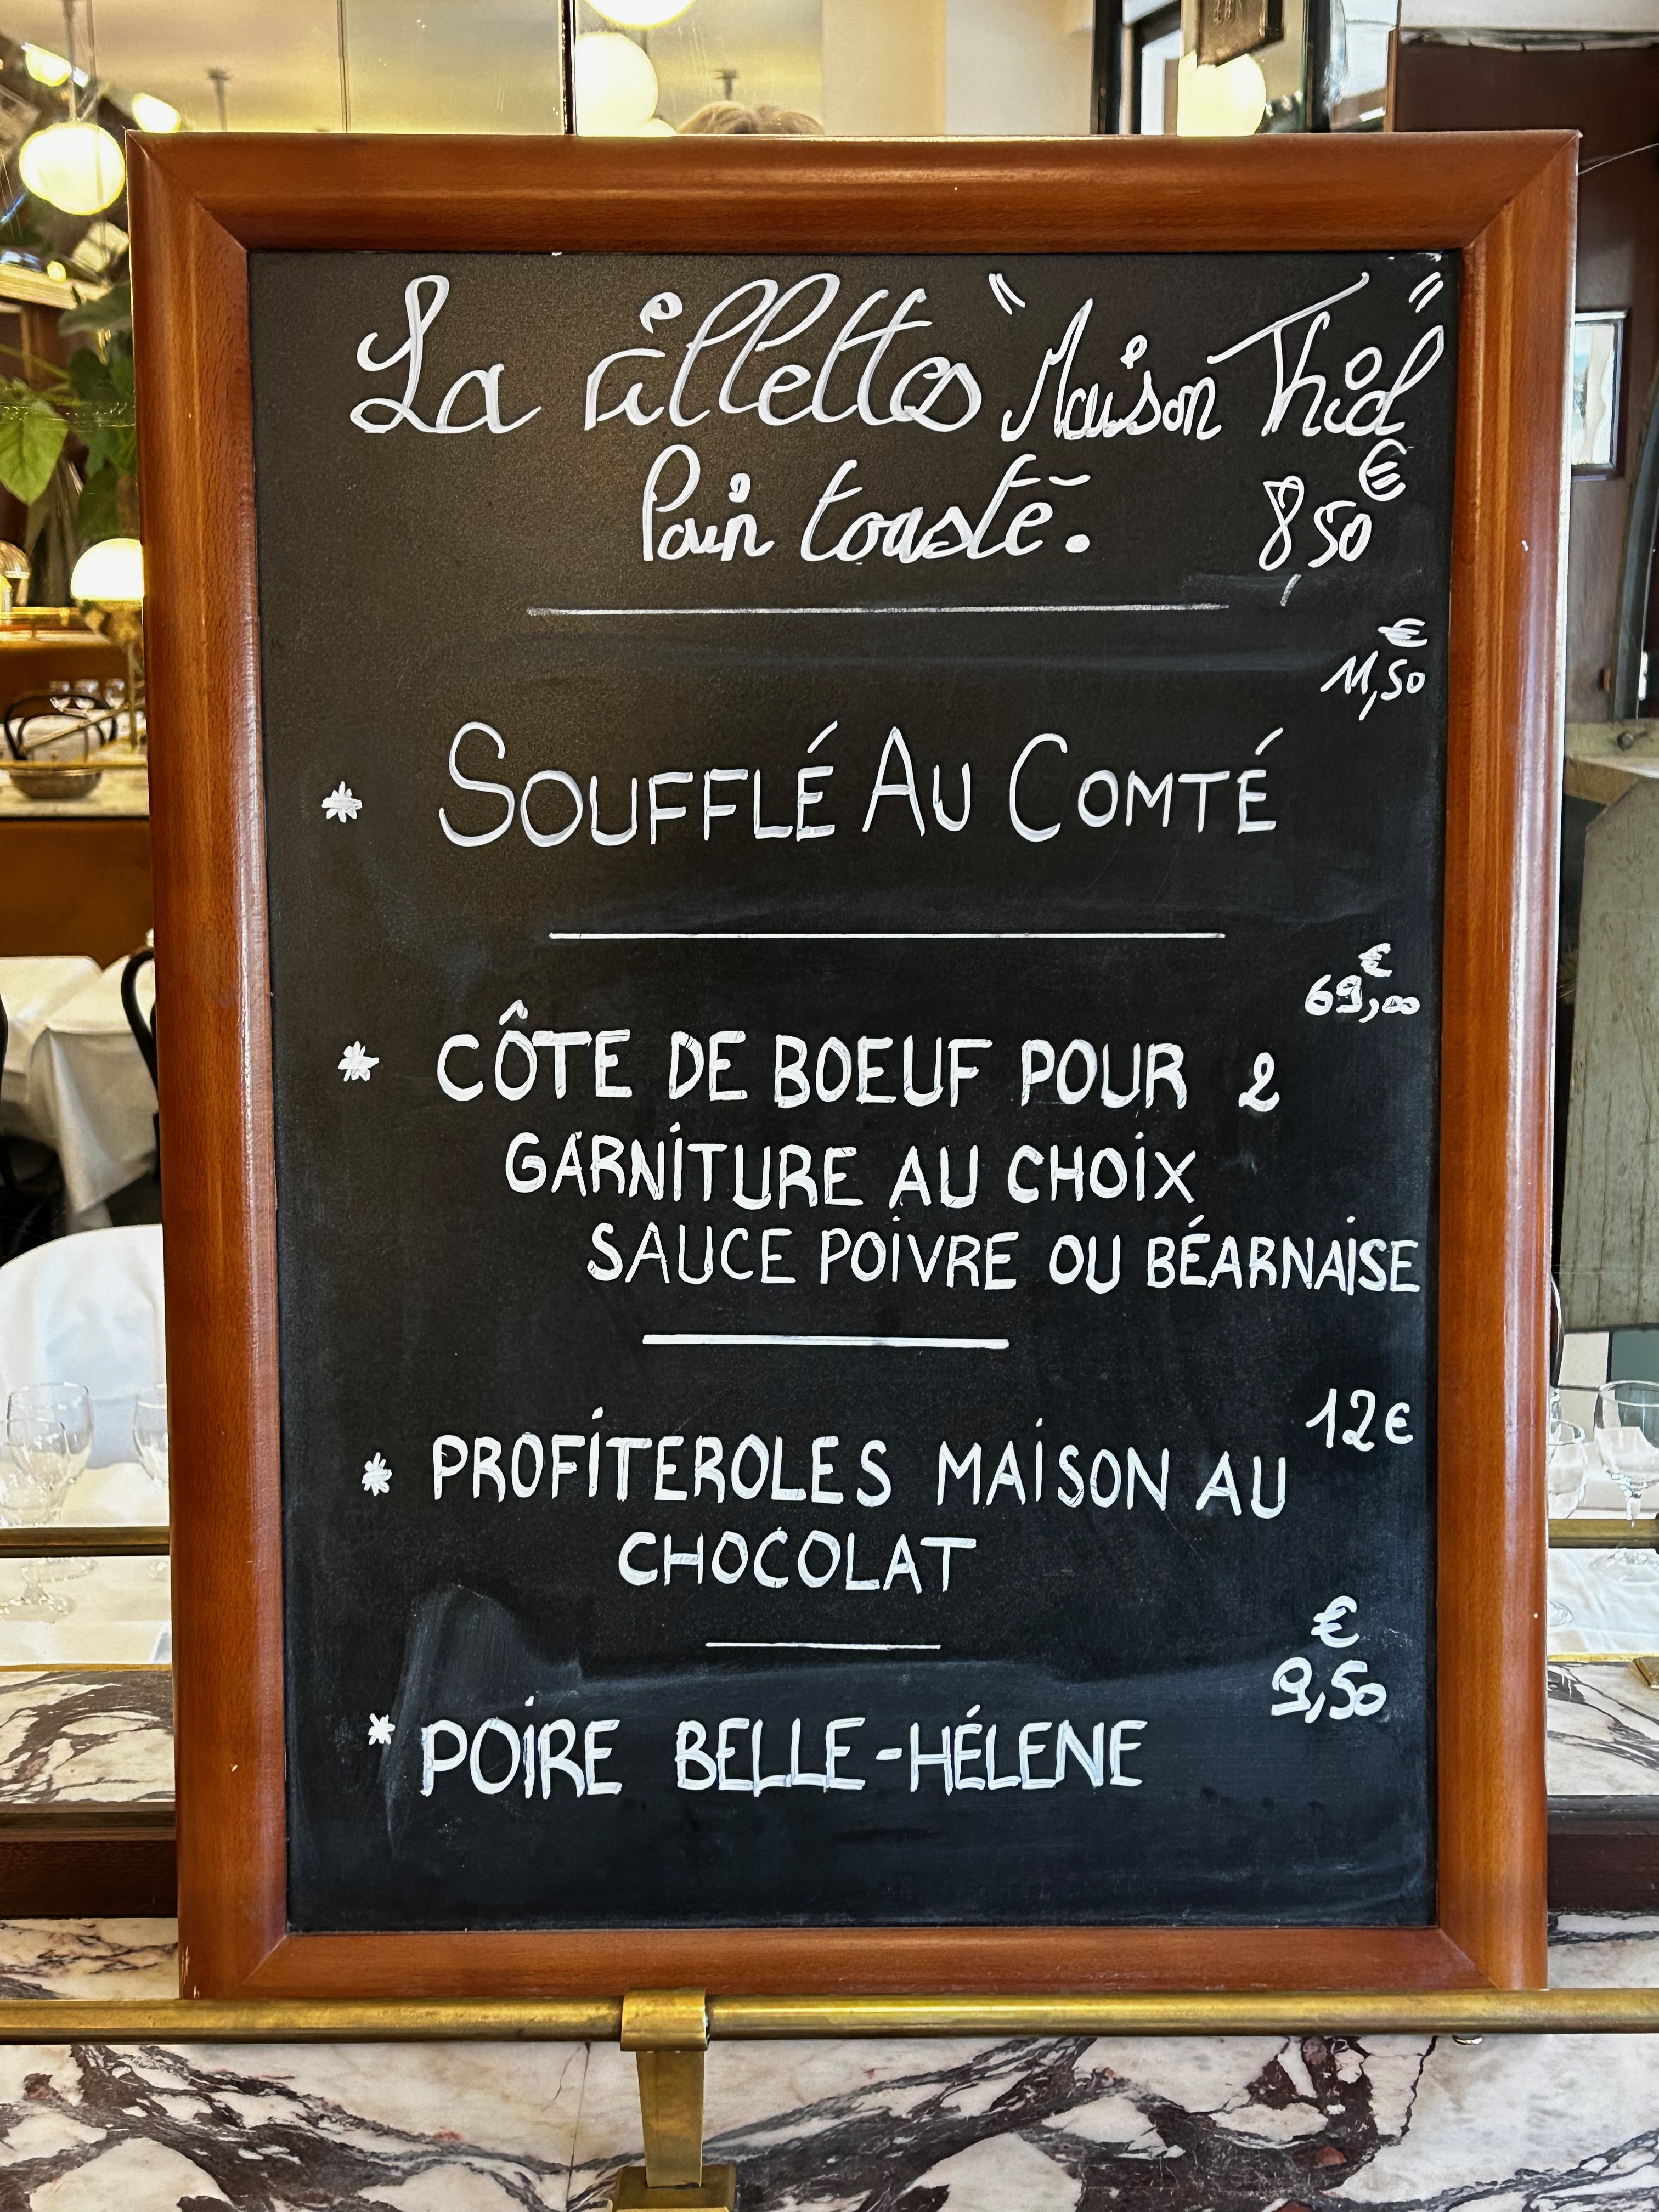 La rillettes "Maison Thid"
Pain toasté. 8,50€
11,50€
* SOUFFLÉ AU COMTÉ
69,00€
* CÔTE DE BOEUF POUR 2
GARNITURE AU CHOIX
SAUCE POIVRE OU BÉARNAISE
12€
* PROFITEROLES MAISON AU
CHOCOLAT
€
9,50
* POIRE BELLE-HÉLENE